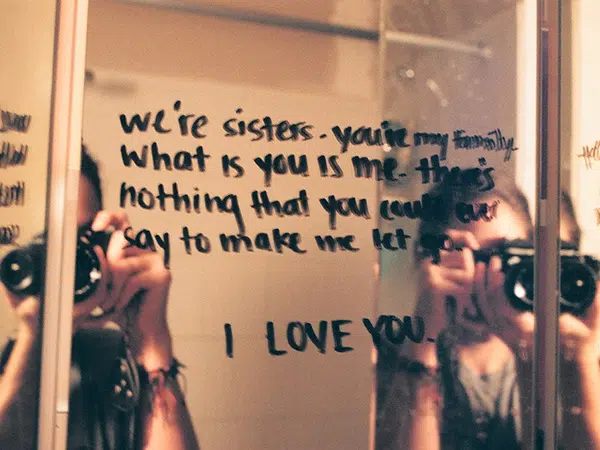 we're sisters. you're my family.
What is you is me. there's
nothing that you could ever
say to make me let go.
I LOVE YOU.